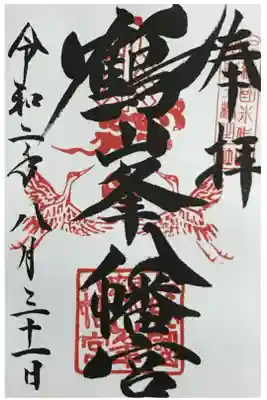 奉拝
鶴峯八幡宮
令和二年八月三十一日